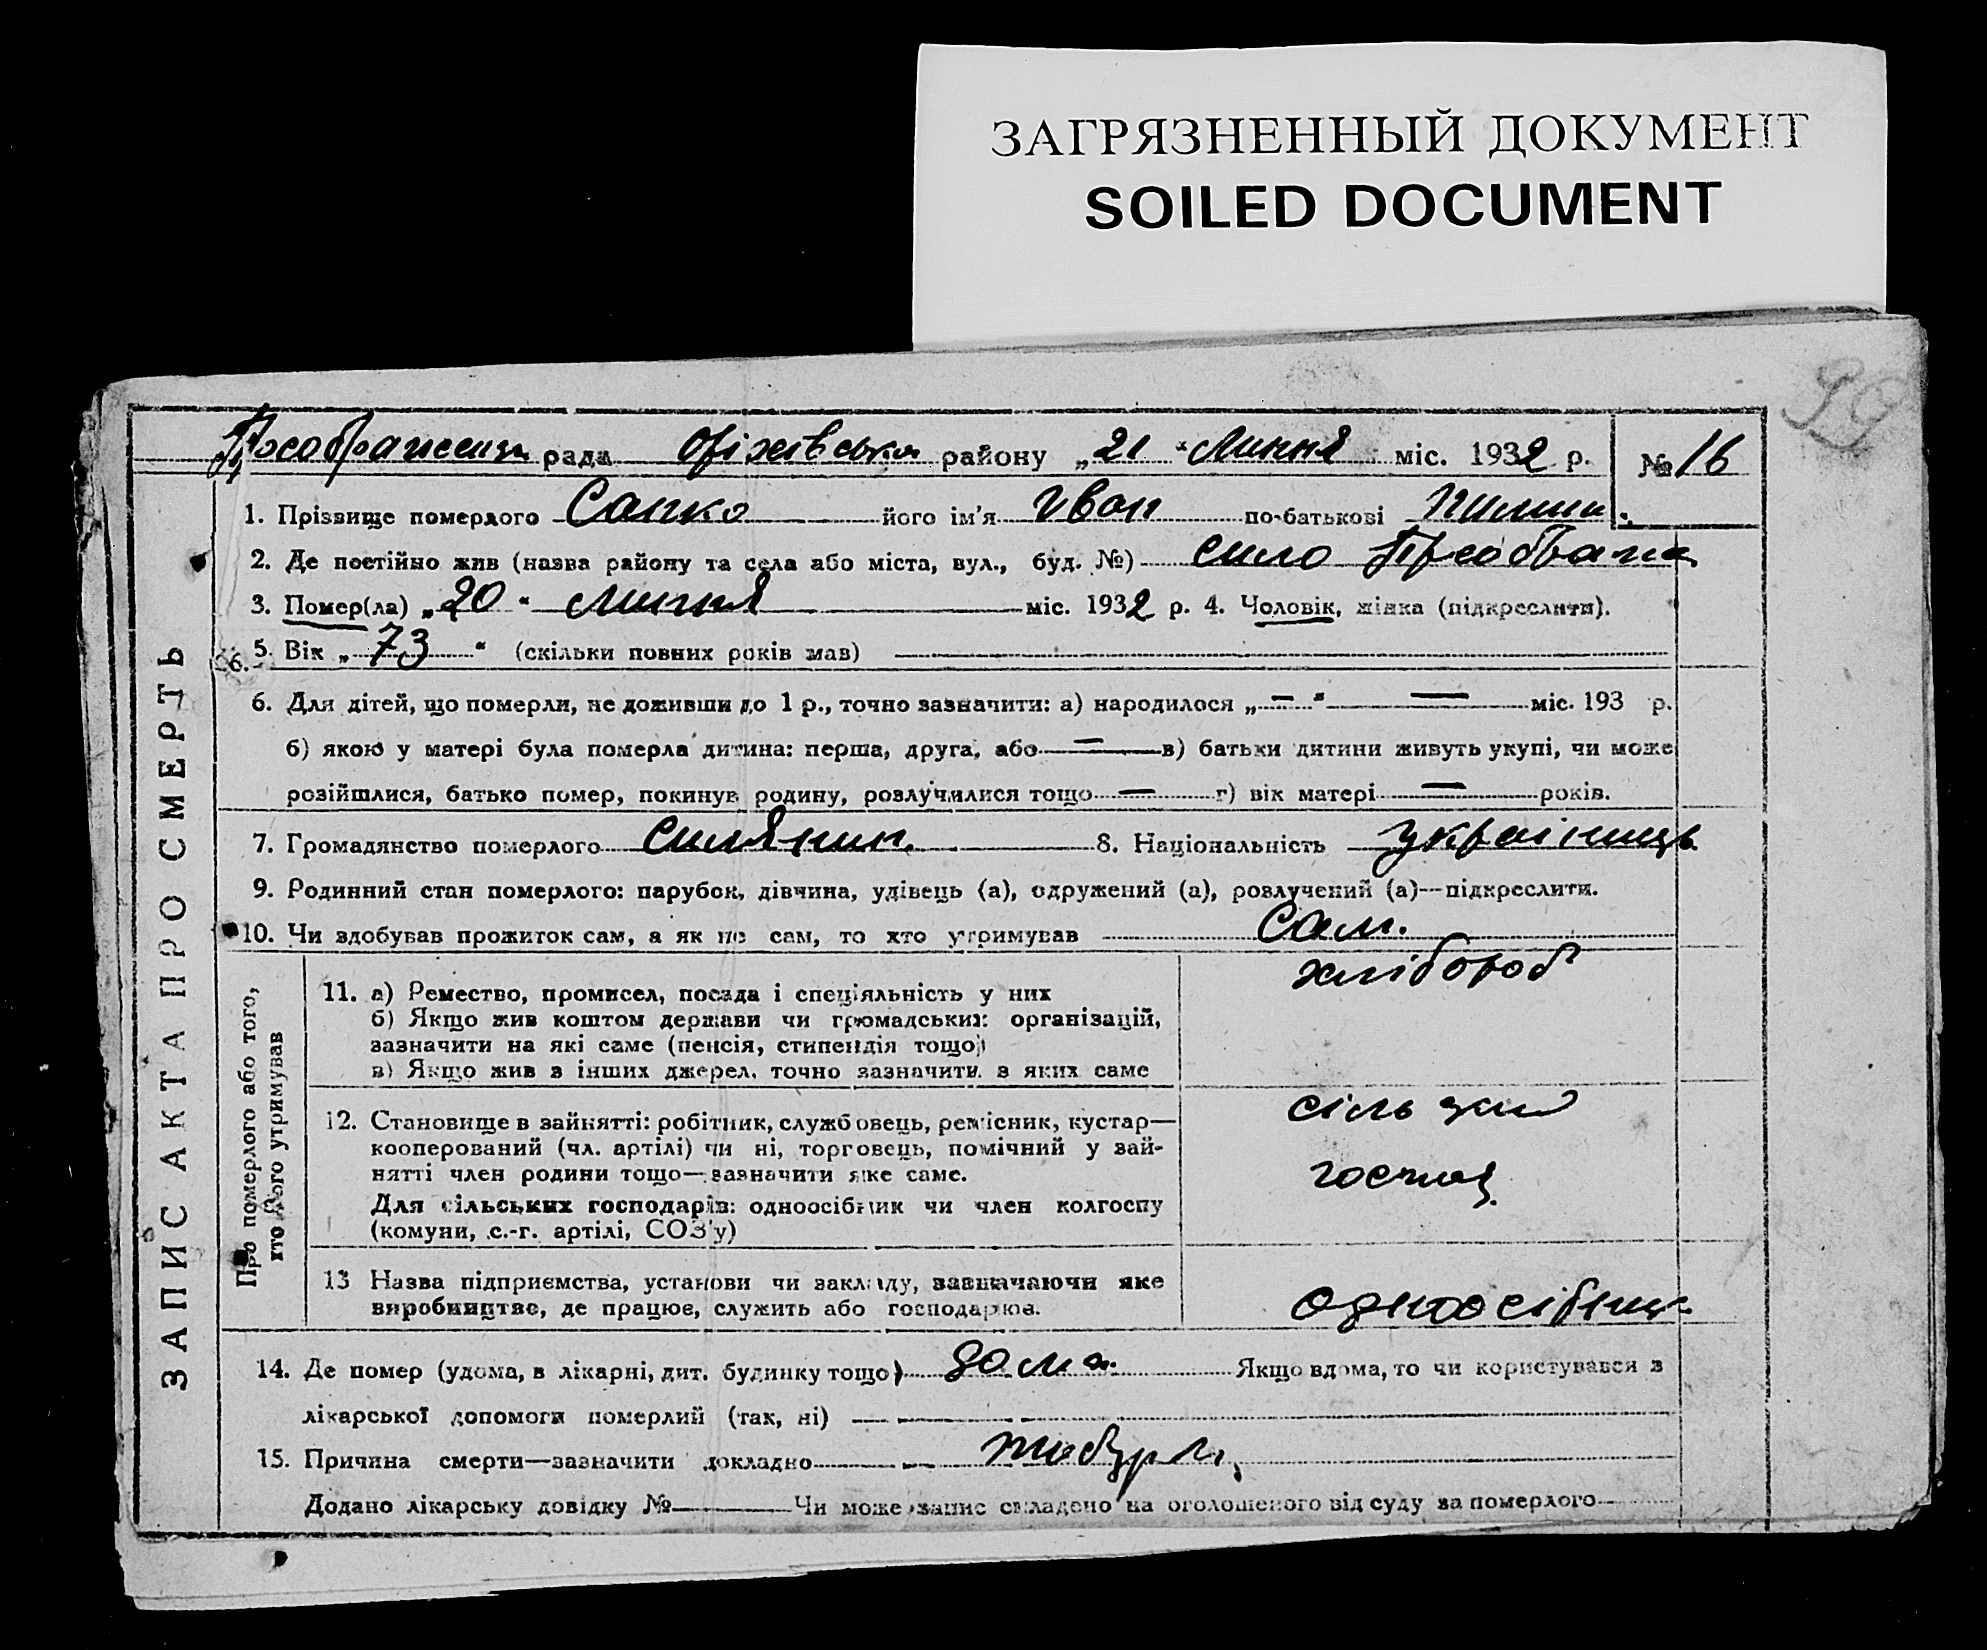 ЗАГРЯЗНЕННЫЙ ДОКУМЕНТ
SOILED DOCUMENT
99
рада Оріхівська району „21" Липня міс. 1932 р. № 16
ЗАПИС АКТА ПРО СМЕРТЬ
1. Прізвище померлого Сапко його ім'я Иван по-батькові
2. Де постійно жив (назва району та села або міста, вул., буд. №) село Преображ
3. Помер(ла) „20" Липня міс. 1932 р. 4. Чоловік, жінка (підкреслити).
5. Вік „73" (скільки повних років мав)
6. Для дітей, що померли, не доживши до 1 р., точно зазначити: а) народилося „—" — міс. 193 р.
б) якою у матері була померла дитина: перша, друга, або — в) батьки дитини живуть укупі, чи може
розійшлися, батько помер, покинув родину, розлучилися тощо — г) вік матері — років.
7. Громадянство померлого селянин. 8. Національність українець
9. Родинний стан померлого: парубок, дівчина, удівець (а), одружений (а), розлучений (а)—підкреслити.
10. Чи здобував прожиток сам, а як не сам, то хто утримував Сам.
Про померлого або того,
хто його утримував
11. а) Ремество, промисел, посада і спеціяльність у них хлібороб
б) Якщо жив коштом держави чи громадських організацій,
зазначити на які саме (пенсія, стипендія тощо)
в) Якщо жив з інших джерел, точно зазначити з яких саме
12. Становище в зайнятті: робітник, службовець, ремісник, кустар— сіль
кооперований (чл. артілі) чи ні, торговець, помічний у зай-
нятті член родини тощо—зазначити яке саме. господ.
Для сільських господарів: одноосібник чи член колгоспу
(комуни, с.-г. артілі, СОЗ'у)
13 Назва підприємства, установи чи закладу, зазначаючи яке
виробництво, де працює, служить або господарює. одноосібник
14. Де помер (удома, в лікарні, дит. будинку тощо) дома. Якщо вдома, то чи користувався з
лікарської допомоги померлий (так, ні) —
15. Причина смерти—зазначити докладно
Додано лікарську довідку № Чи може запис складено на оголошеного від суду за померлого